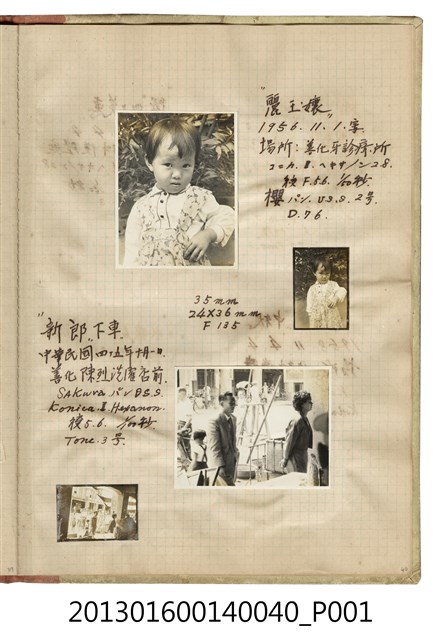 "麗玉孃"
1956. 11. 1. 字
場所: 善化牙診療所
コニカ.Ⅱ.ヘキサノン 2.8.
絞 F.5.6.
櫻パン. U.S.S. 2号.
D.76.
35mm
24X36mm
F 135
"新郎"下車
中華民国四十五年十一月一日.
善化陳烈洗
前.
SAKURA パン U.S.S.
Konica Ⅱ. Hexanon.
絞 5.6.
Tone. 3号.
201301600140040_P001